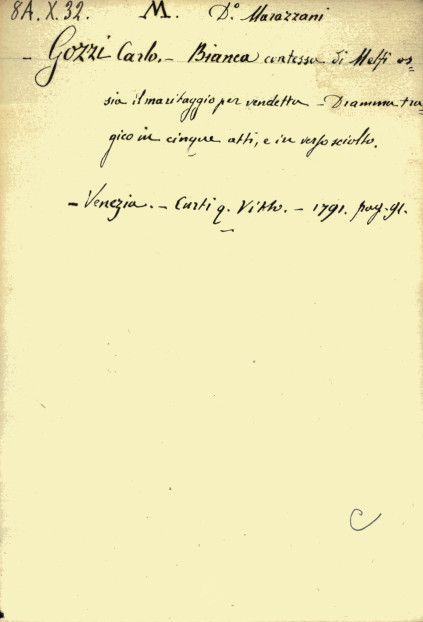 8A. X. 32. M. D.º Marazzani
– Gozzi Carlo. – Bianca contessa di Melfi os=
sia il maritaggio per vendetta – Dramma tra=
gico in cinque atti, e in verso sciolto.
– Venezia. – Curti q. Vitto. – 1791. pag. 91.
C